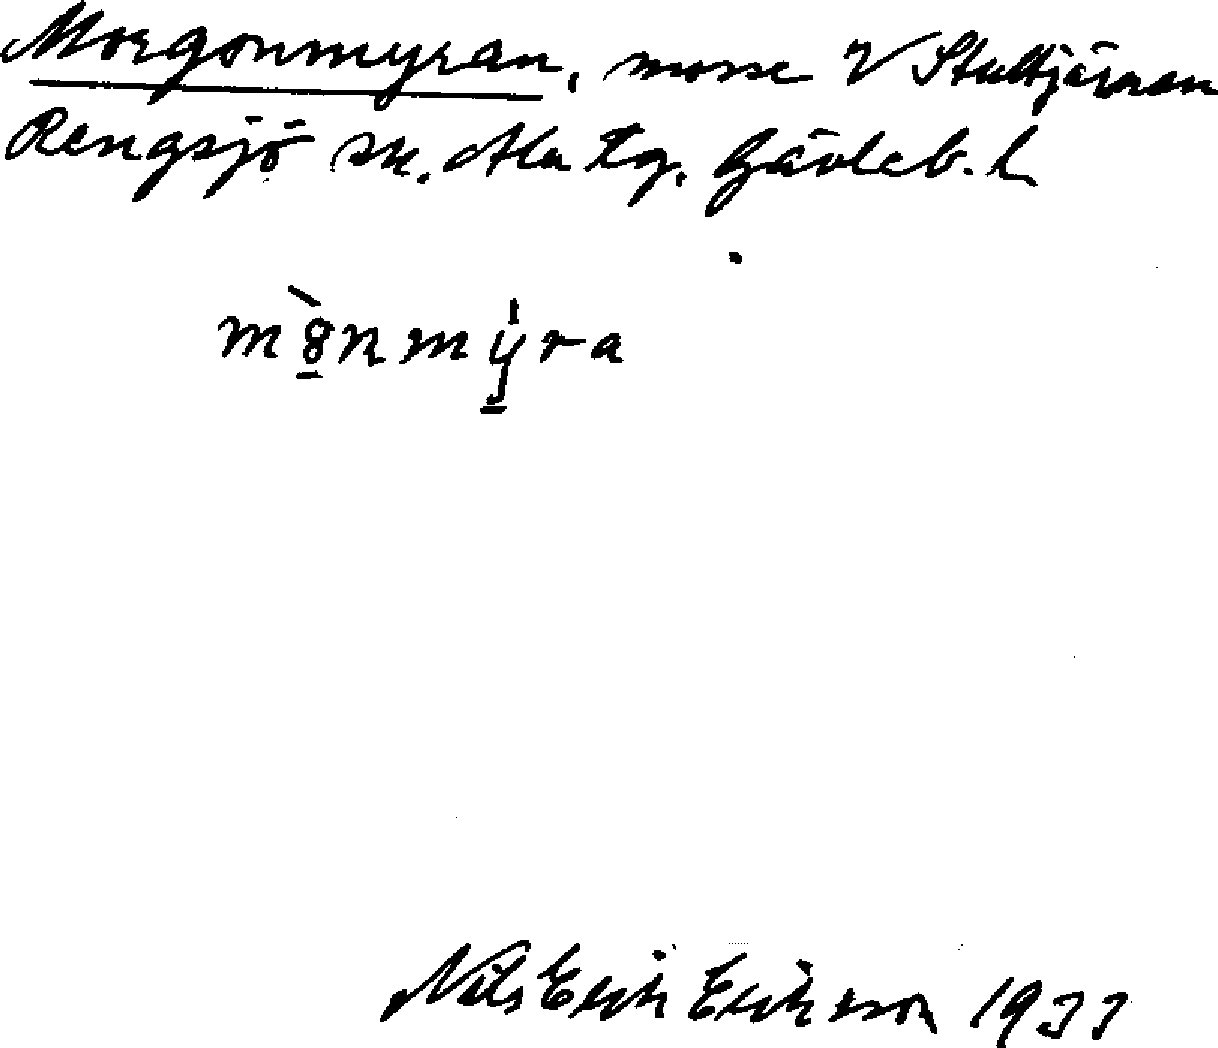 Morgonmyran, mosse V Stultjärnen
Rengsjö sn. Ala tg. Gävleb. l.
mȍ̱nmy̱̍ra
Nils Erik Eriksson 1933